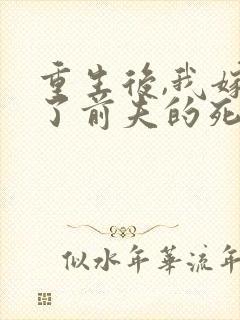 重生後,我嫁
了前夫的死
似水年華流年